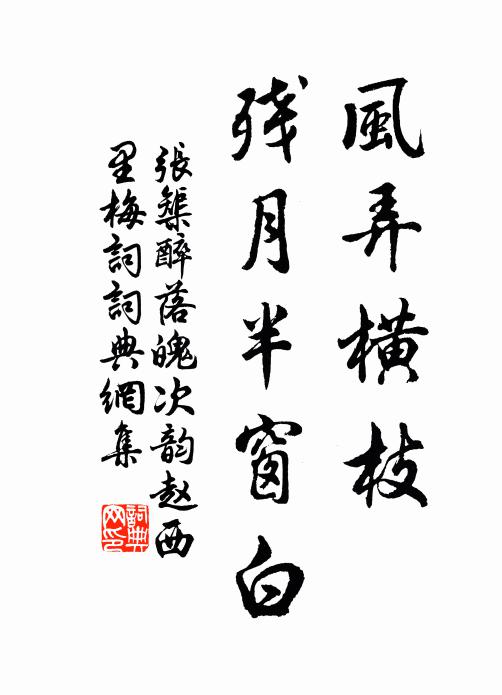 風弄橫枝
残月半窗白
張榘醉落魄次韵赵西
里梅詞詞典網集
詞典
网印